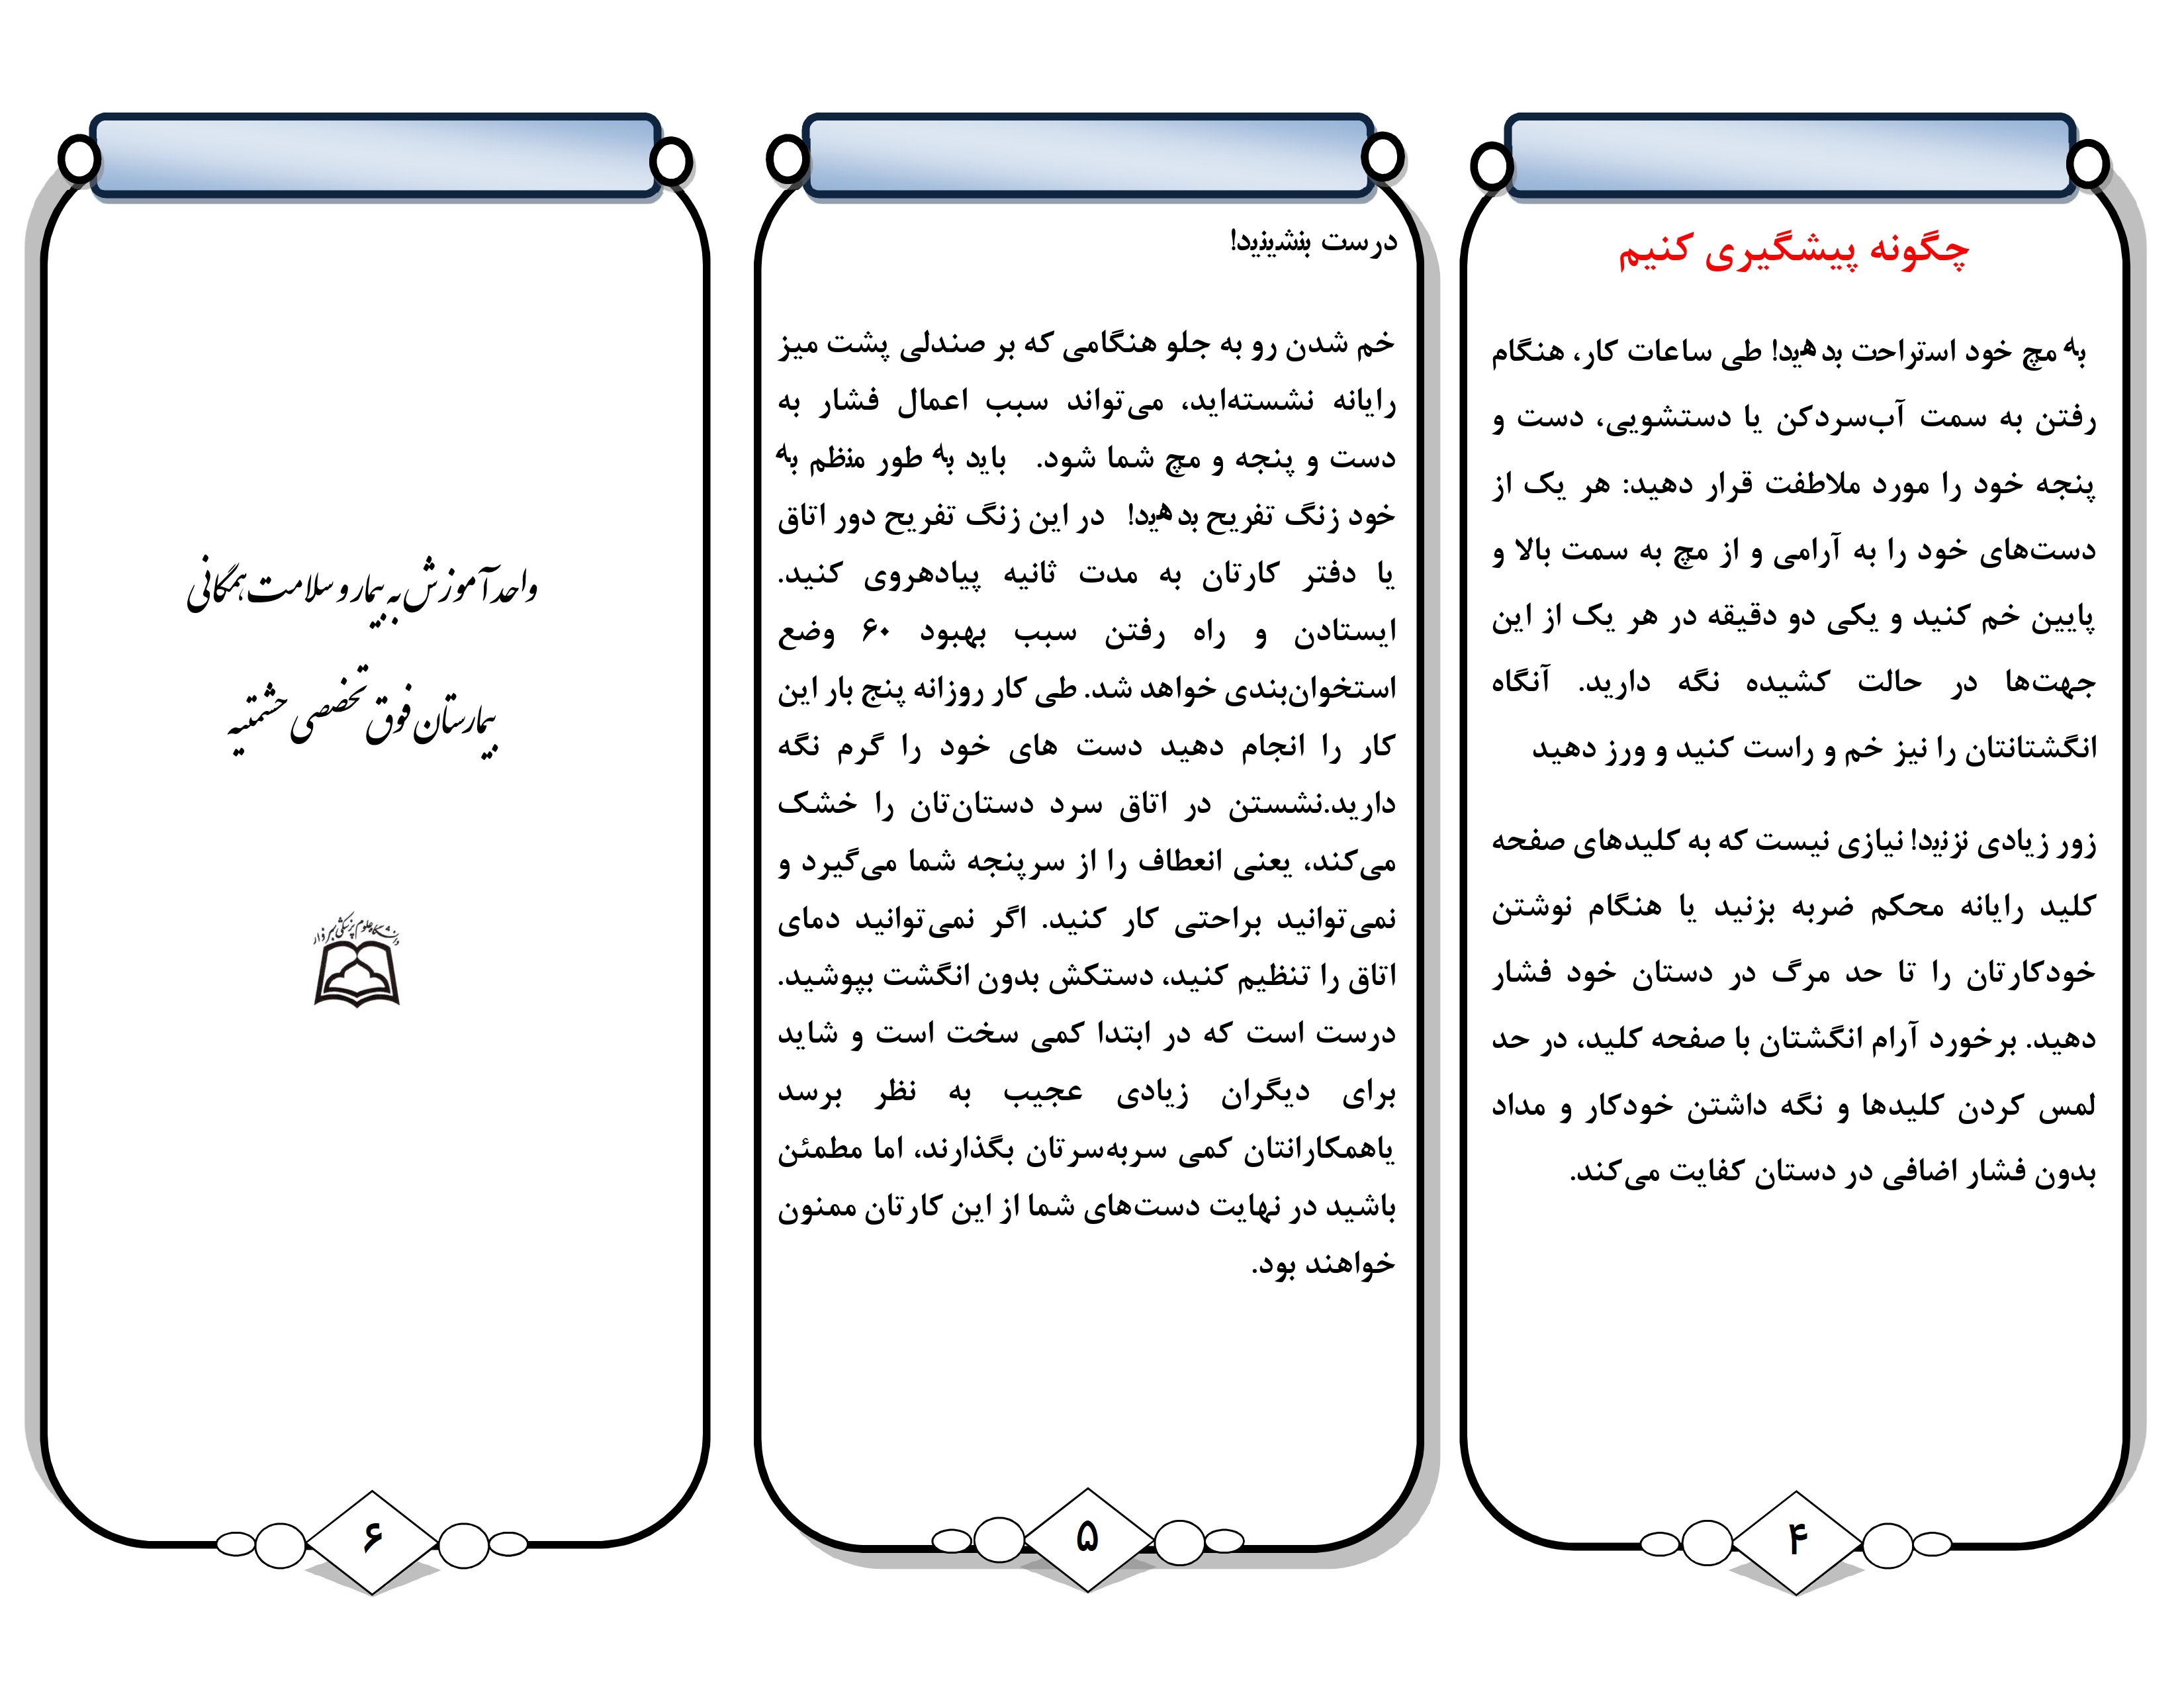 چگونه پیشگیری کنیم
به مچ خود استراحت بدهید! طی ساعات کار، هنگام
رفتن به سمت آب‌سردکن یا دستشویی، دست و
پنجه خود را مورد ملاطفت قرار دهید: هر یک از
دست‌های خود را به آرامی و از مچ به سمت بالا و
پایین خم کنید و یکی دو دقیقه در هر یک از این
جهت‌ها در حالت کشیده نگه دارید. آنگاه
انگشتانتان را نیز خم و راست کنید و ورز دهید
زور زیادی نزنید! نیازی نیست که به کلیدهای صفحه
کلید رایانه محکم ضربه بزنید یا هنگام نوشتن
خودکارتان را تا حد مرگ در دستان خود فشار
دهید. برخورد آرام انگشتان با صفحه کلید، در حد
لمس کردن کلیدها و نگه داشتن خودکار و مداد
بدون فشار اضافی در دستان کفایت می‌کند.
۴
درست بنشینید!
خم شدن رو به جلو هنگامی که بر صندلی پشت میز
رایانه نشسته‌اید، می‌تواند سبب اعمال فشار به
دست و پنجه و مچ شما شود. باید به طور منظم به
خود زنگ تفریح بدهید! در این زنگ تفریح دور اتاق
یا دفتر کارتان به مدت ثانیه پیادهروی کنید.
ایستادن و راه رفتن سبب بهبود ۶۰ وضع
استخوان‌بندی خواهد شد. طی کار روزانه پنج بار این
کار را انجام دهید دست های خود را گرم نگه
دارید.نشستن در اتاق سرد دستان‌تان را خشک
می‌کند، یعنی انعطاف را از سرپنجه شما می‌گیرد و
نمی‌توانید براحتی کار کنید. اگر نمی‌توانید دمای
اتاق را تنظیم کنید، دستکش بدون انگشت بپوشید.
درست است که در ابتدا کمی سخت است و شاید
برای دیگران زیادی عجیب به نظر برسد
یاهمکارانتان کمی سربه‌سرتان بگذارند، اما مطمئن
باشید در نهایت دست‌های شما از این کارتان ممنون
خواهند بود.
۵
واحد آموزش به بیمار و سلامت همگانی
بیمارستان فوق تخصصی حشمتیه
دانشگاه علوم پزشکی سبزوار
۶